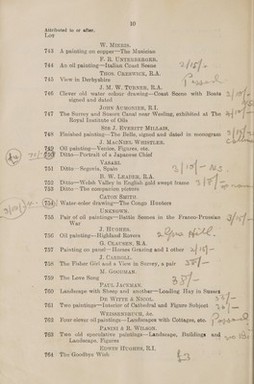 10
Attributed to or after.
Lot
W. MIERIS.
743 A painting on copper—The Musician
F. R. UNTERBERGER.
744 An oil painting—Italian Coast Scene
THOS. CRESWICK, R.A.
745 View in Derbyshire
Passed
J. M. W. TURNER, R.A.
746 Clever old water colour drawing—Coast Scene with Boats
signed and detail
JOHN AUMONIER, R.I.
747 The Surrey and Sussex Canal near Weeling, exhibited at The
Royal Institute of Oils
SIR J. EVERITT MILLAIS.
748 Finished painting—The Belle, signed and detail in monogram
J. MACNEIL WHISTLER.
749 Oil painting—Venice, Figures, etc.
750 Ditto—Portrait of a Japanese Chief
VASARI.
751 Ditto—Segovia, Spain
B. W. LEADER, R.A.
752 Ditto—Welsh Valley in English gold swept frame
753 Ditto—The companion picture
CATON SMITH
754 Water-color drawing—The Congo Hunters
UNKNOWN.
755 Pair of oil paintings—Battle Scenes in the Franco-Prussian
War
J. HUGHES.
756 Oil painting—Highland Rovers
G. CLAUSEN, R.A.
757 Painting on panel—Horses Grazing and 1 other
J. CARROLL.
758 The Fisher Girl and a View in Surrey, a pair
M. GOODMAN.
759 The Love Song
PAUL JACKMAN.
760 Landscape with Sheep and another—Loading Hay in Sussex
DE WITTE & NEILL.
761 Two paintings—Interior of Cathedral and Figure Subject
WEISSENBRUCK, &c.
762 Four clever oil paintings—Landscapes with Cottages, etc.
Passed
PANINI & R. WILSON.
763 Two old speculative paintings—Landscape, Buildings and
Landscape, Figures
EDWIN HUGHES, R.I.
764 The Goodbye Wish
£3